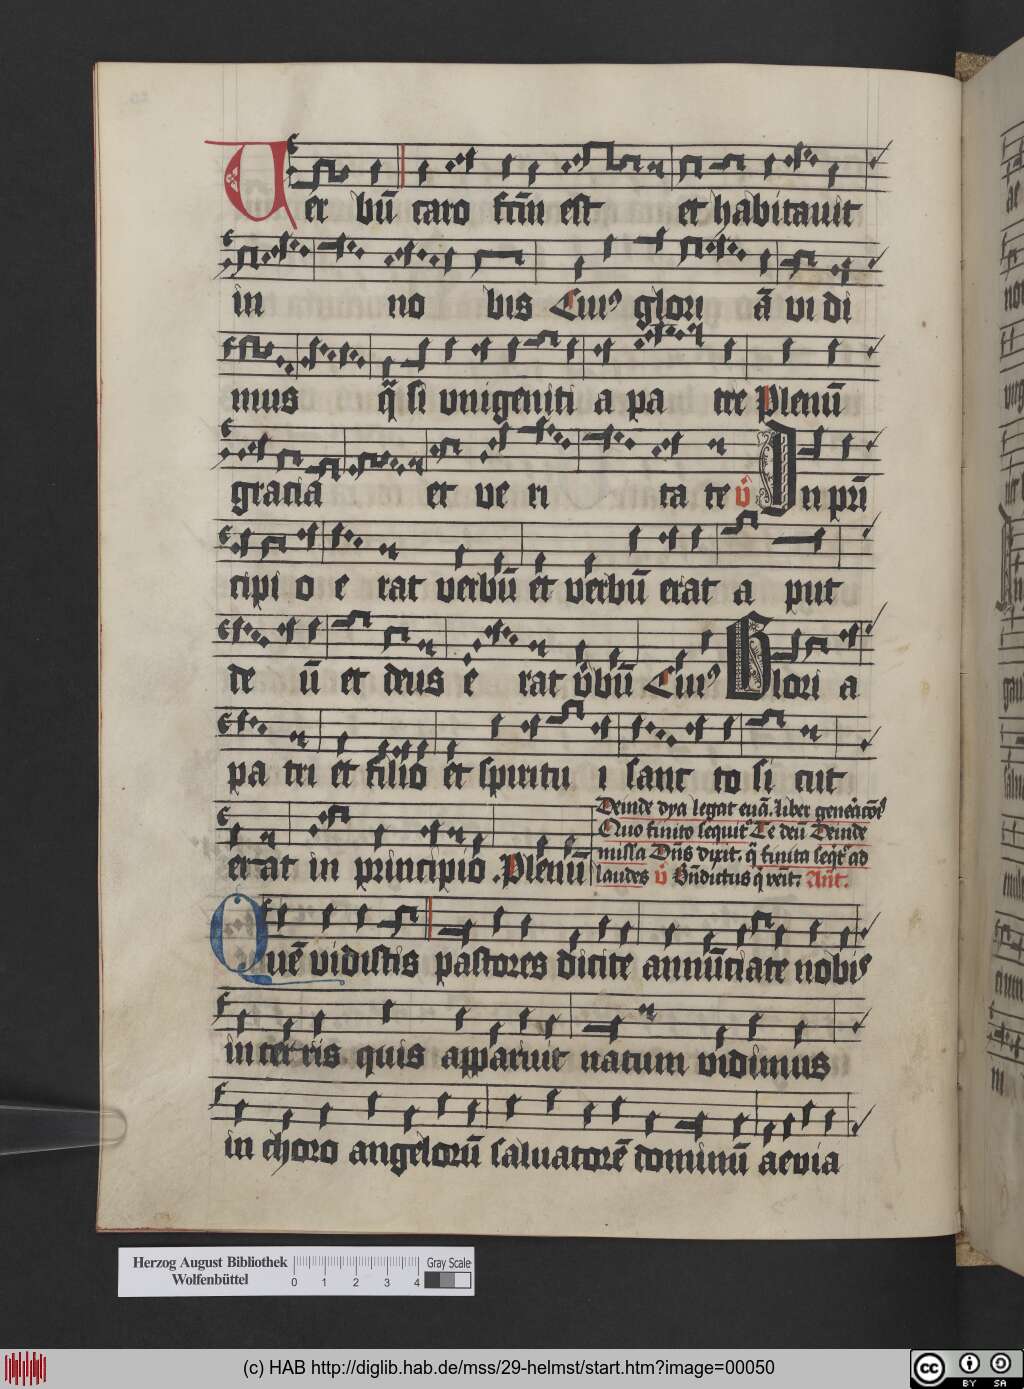 Uer bū caro fcm̄ est et habitauit
in no bis Cuiꝰ glori ā vi di
mus q̈ si vnigeniti a pa tre Plenū
gracia et ve ri ta te v̊ In pri
cipi o e rat verbū et verbū erat a put
de ū et deus e rat v̊bū Cuiꝰ Glori a
pa tri et filio et spiritu i sanc to si cut
erat in principio Plenū
Deinde dya legat euā. liber
Quo finito sequit᷑ Te deū Deinde
missa Dn̄s dixit. q̄ finita seqt᷑ ad
laudes v̊ Bn̄dictus q̇ venit: Ant.
Quē vidistis pastores dicite annūciate nobis
in terris quis apparuit natum vidimus
in choro angelorū saluatorē dominū aevia
Herzog August Bibliothek
Wolfenbüttel
0 1 2 3 4
Gray Scale
(c) HAB http://diglib.hab.de/mss/29-helmst/start.htm?image=00050
cc BY SA